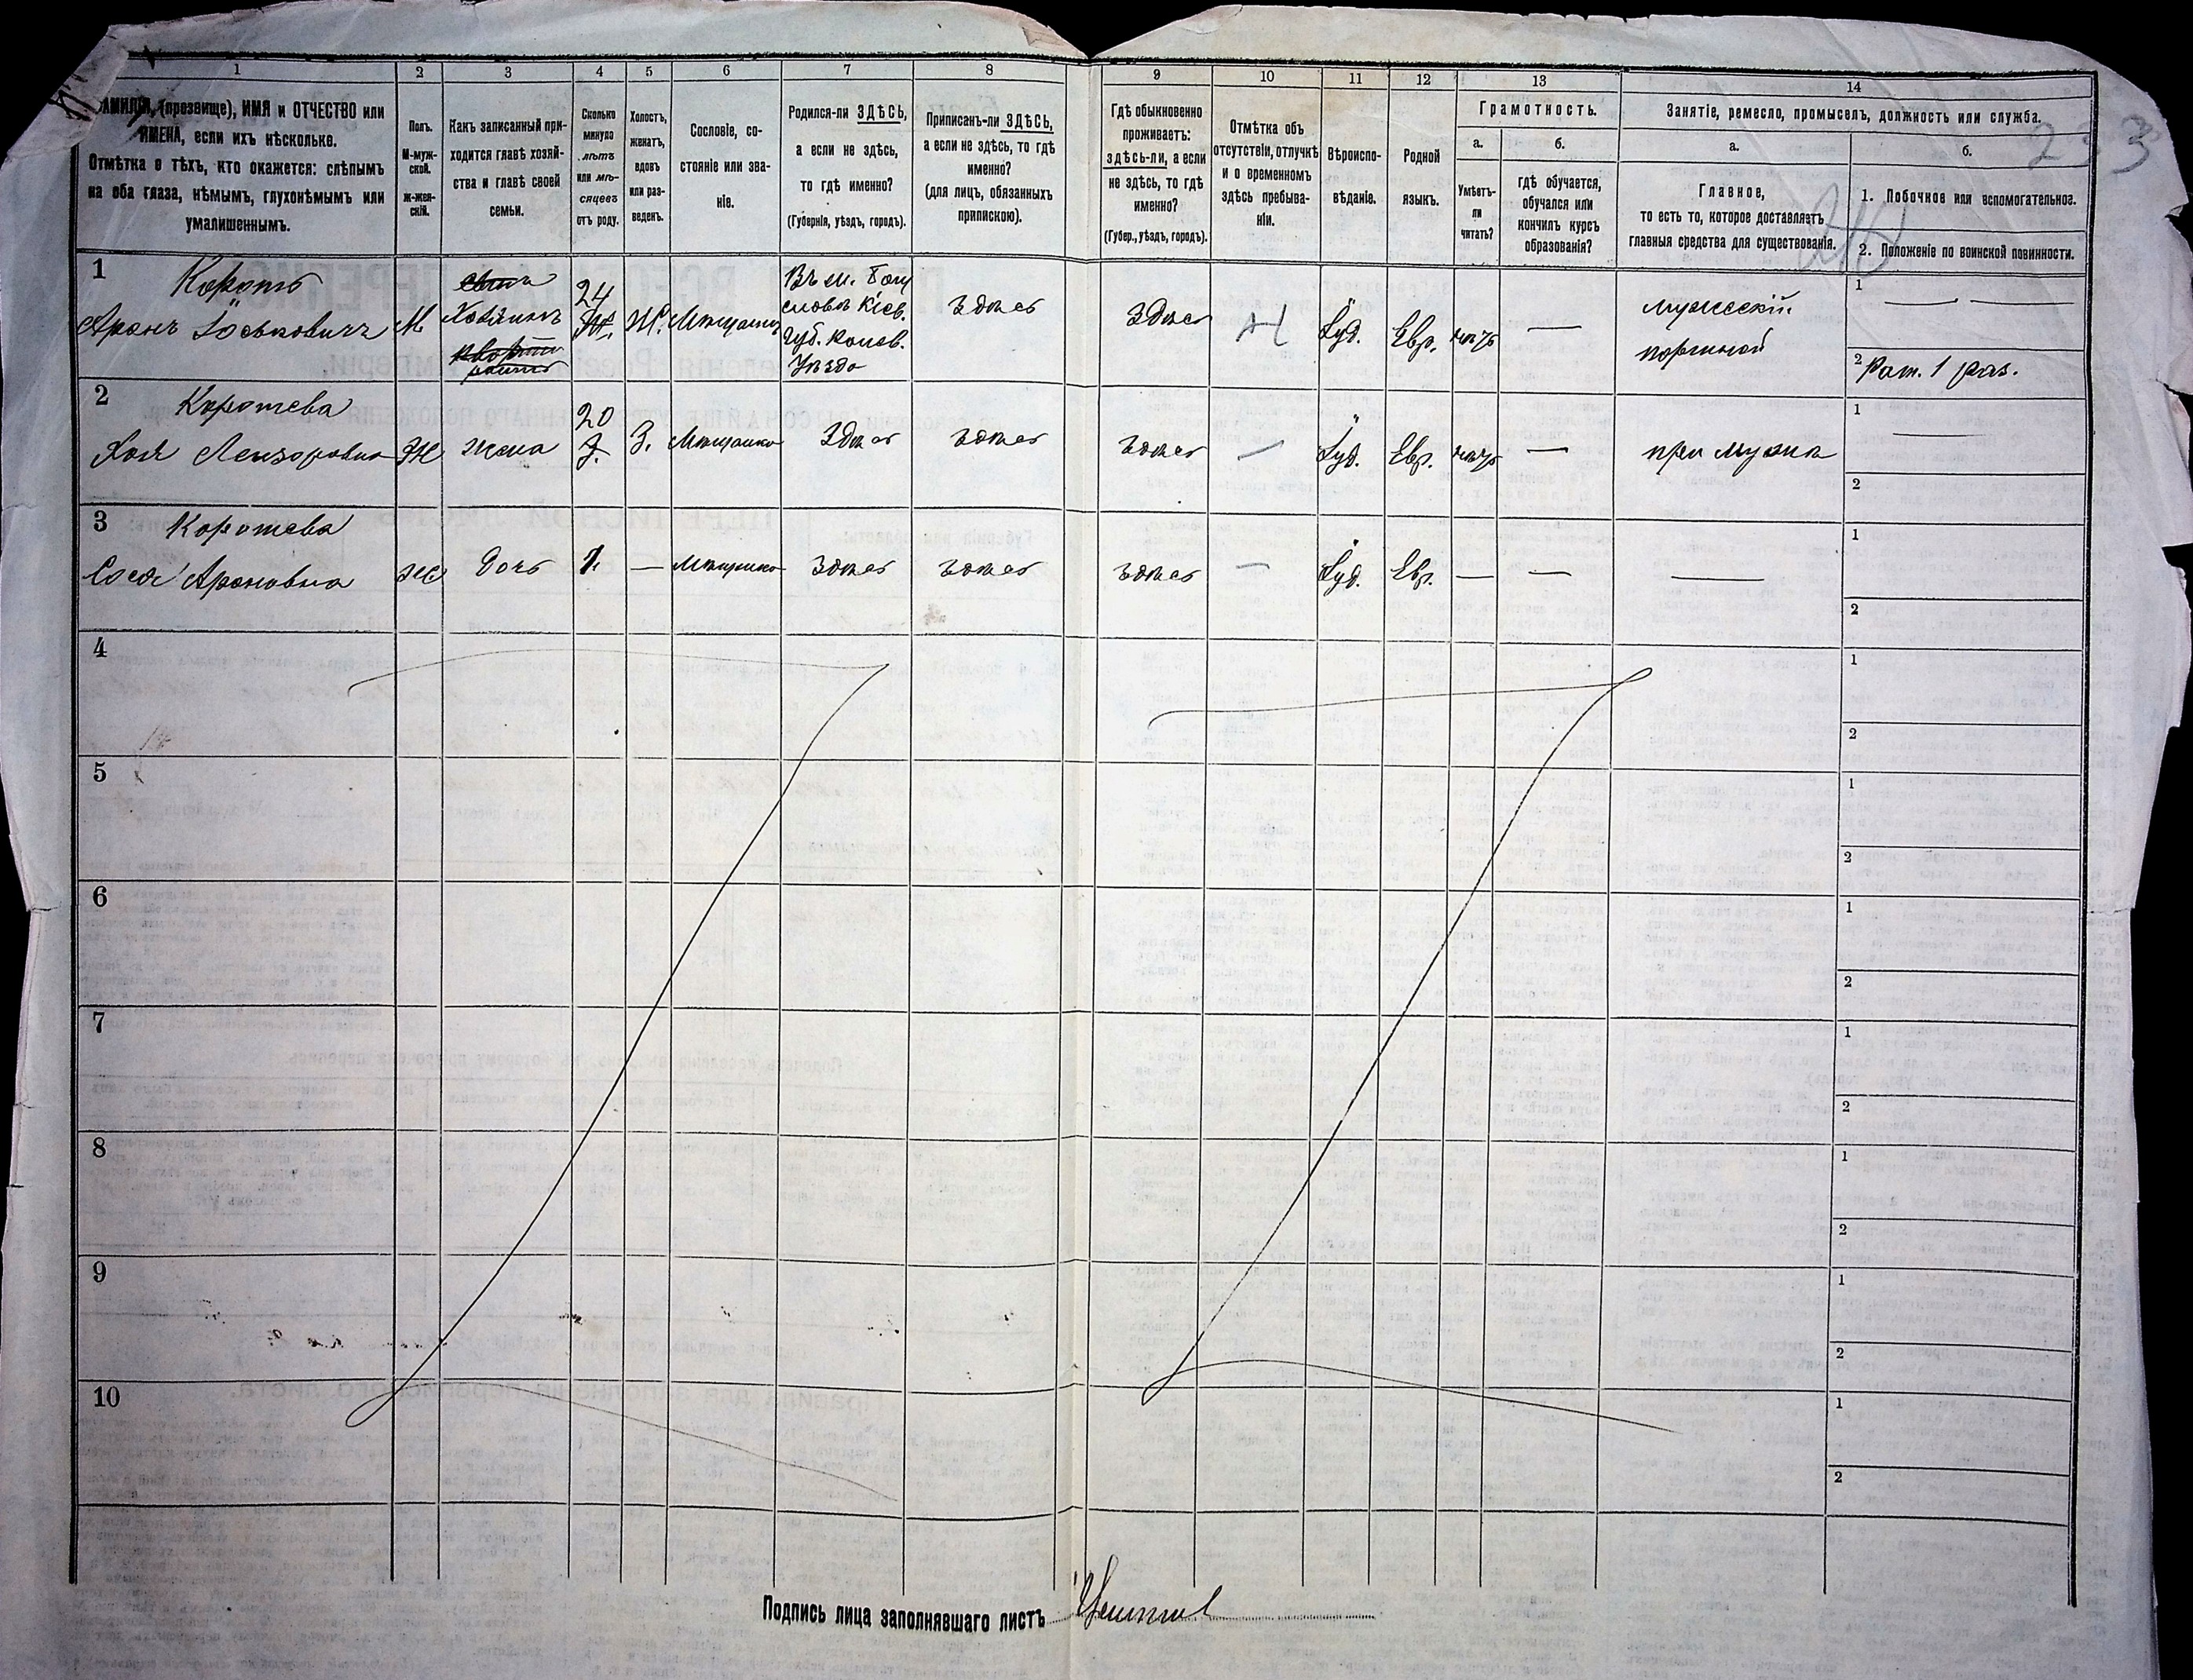 1 2 3 4 5 6 7 8 9 10 11 12 13 14
АМИЛІЯ, (прозвище), ИМЯ и ОТЧЕСТВО или
ИМЕНА, если ихъ нѣсколько.
Отмѣтка о тѣхъ, кто окажется: слѣпымъ
на оба глаза, нѣмымъ, глухонѣмымъ или
умалишеннымъ.
Полъ.
М-муж-
ской.
ж-жен-
скій.
Какъ записанный при-
ходится главѣ хозяй-
ства и главѣ своей
семьи.
Сколько
минуло
лѣтъ
или мѣ-
сяцевъ
отъ роду.
Холостъ,
женатъ,
вдовъ
или раз-
веденъ.
Сословіе, со-
стояніе или зва-
ніе.
Родился-ли ЗДѢСЬ,
а если не здѣсь,
то гдѣ именно?
(Губернія, уѣздъ, городъ).
Приписанъ-ли ЗДѢСЬ,
а если не здѣсь, то гдѣ
именно?
(для лицъ, обязанныхъ
припискою).
Гдѣ обыкновенно
проживаетъ:
здѣсь-ли, а если
не здѣсь, то гдѣ
именно?
(Губер., уѣздъ, городъ).
Отмѣтка объ
отсутствіи, отлучкѣ
и о временномъ
здѣсь пребыва-
ніи.
Вѣроиспо-
вѣданіе.
Родной
языкъ.
Грамотность.
а.
Умѣетъ-
ли
читать?
б.
гдѣ обучается,
обучался или
кончилъ курсъ
образованія?
Занятіе, ремесло, промыселъ, должность или служба.
а.
Главное,
то есть то, которое доставляетъ
главныя средства для существованія.
б.
1. Побочное или вспомогательное.
2. Положеніе по воинской повинности.
233
1
Коротъ
Аронъ Іоськовичъ
М.
Хозяинъ
24
Ж.
Мѣщанинъ
Въ м. Богу
славѣ Кіев.
Губ. Канев.
Уѣзда
Здѣсь
Здѣсь
Іуд.
Евр.
мужескій
портной
1
2 Рат. 1 раз.
2
Коротева
Хая Лейзоровна
Ж
жена
20
З.
Мѣщанка
Здѣсь
Здѣсь
Здѣсь
Іуд.
Евр.
при мужѣ
1
2
3
Коротева
Сося Ароновна
ж
дочь
1.
Мѣщанка
Здѣсь
Здѣсь
Здѣсь
Іуд.
Евр.
1
2
4
1
2
5
1
2
6
1
2
7
1
2
8
1
2
9
1
2
10
1
2
Подпись лица заполнявшаго листъ